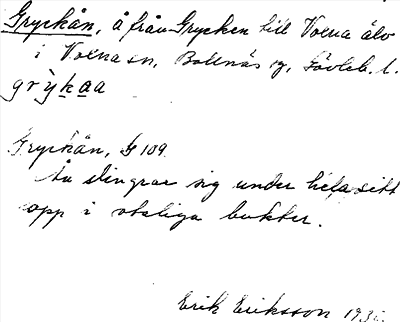 Gryckån, å från Grycken till Voxna älv
i Voxna sn, Bollnäs tg, Gävleb. l.
grỳkaa
Gryckån, G 109
Ån slingrar sig under hela sitt
lopp i otaliga bukter.
Erik Eriksson 193